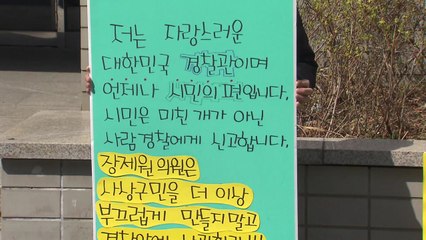 저는 자랑스러운
대한민국 경찰관이며
언제나 시민의 편입니다.
시민은 미친 개가 아닌
사람경찰에게 신고합니다.
장제원 의원은
사상구민을 더 이상
부끄럽게 만들지말고